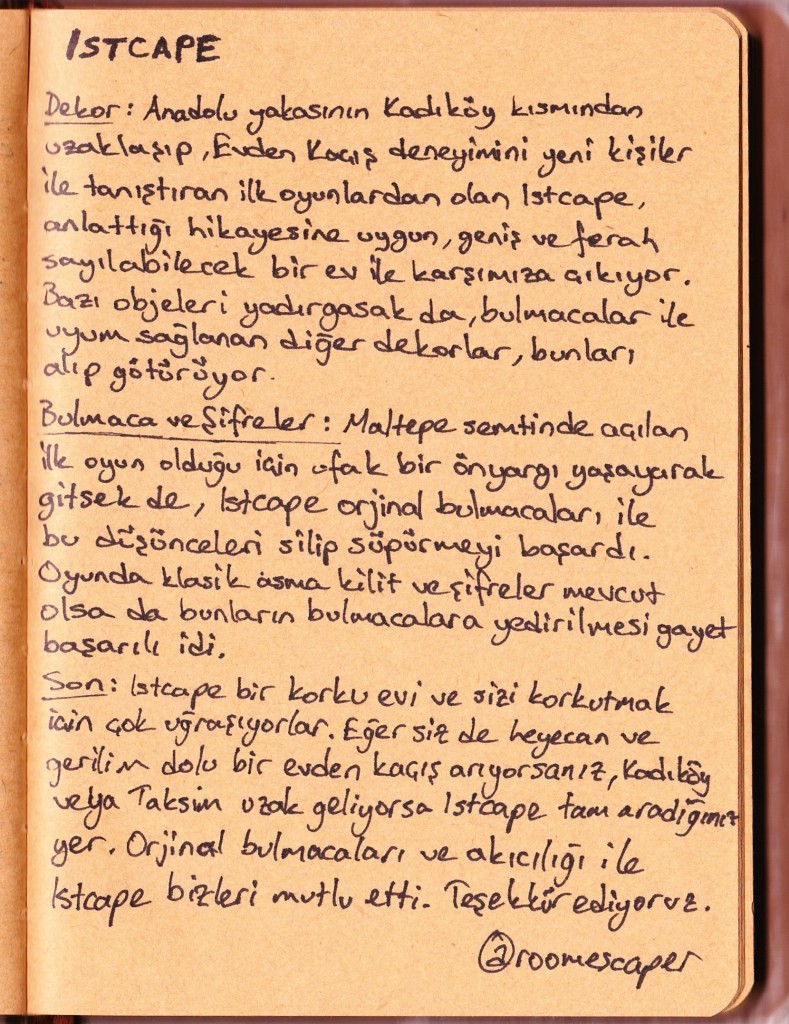 ISTCAPE
Dekor: Anadolu yakasının Kadıköy kısmından
uzaklaşıp, Evden Kaçış deneyimini yeni kişiler
ile tanıştıran ilk oyunlardan olan Istcape,
anlattığı hikayesine uygun, geniş ve ferah
sayılabilecek bir ev ile karşımıza çıkıyor.
Bazı objeleri yadırgasak da, bulmacalar ile
uyum sağlanan diğer dekorlar, bunları
alıp götürüyor.
Bulmaca ve Şifreler: Maltepe semtinde açılan
ilk oyun olduğu için ufak bir önyargı yaşayarak
gitsek de, Istcape orjinal bulmacaları ile
bu düşünceleri silip süpürmeyi başardı.
Oyunda klasik asma kilit ve şifreler mevcut
olsa da bunların bulmacalara yedirilmesi gayet
başarılı idi.
Son: Istcape bir korku evi ve sizi korkutmak
için çok uğraşıyorlar. Eğer siz de heyecan ve
gerilim dolu bir evden kaçış arıyorsanız, Kadıköy
veya Taksim uzak geliyorsa Istcape tam aradığınız
yer. Orjinal bulmacaları ve akıcılığı ile
Istcape bizleri mutlu etti. Teşekkür ediyoruz.
@roomescaper